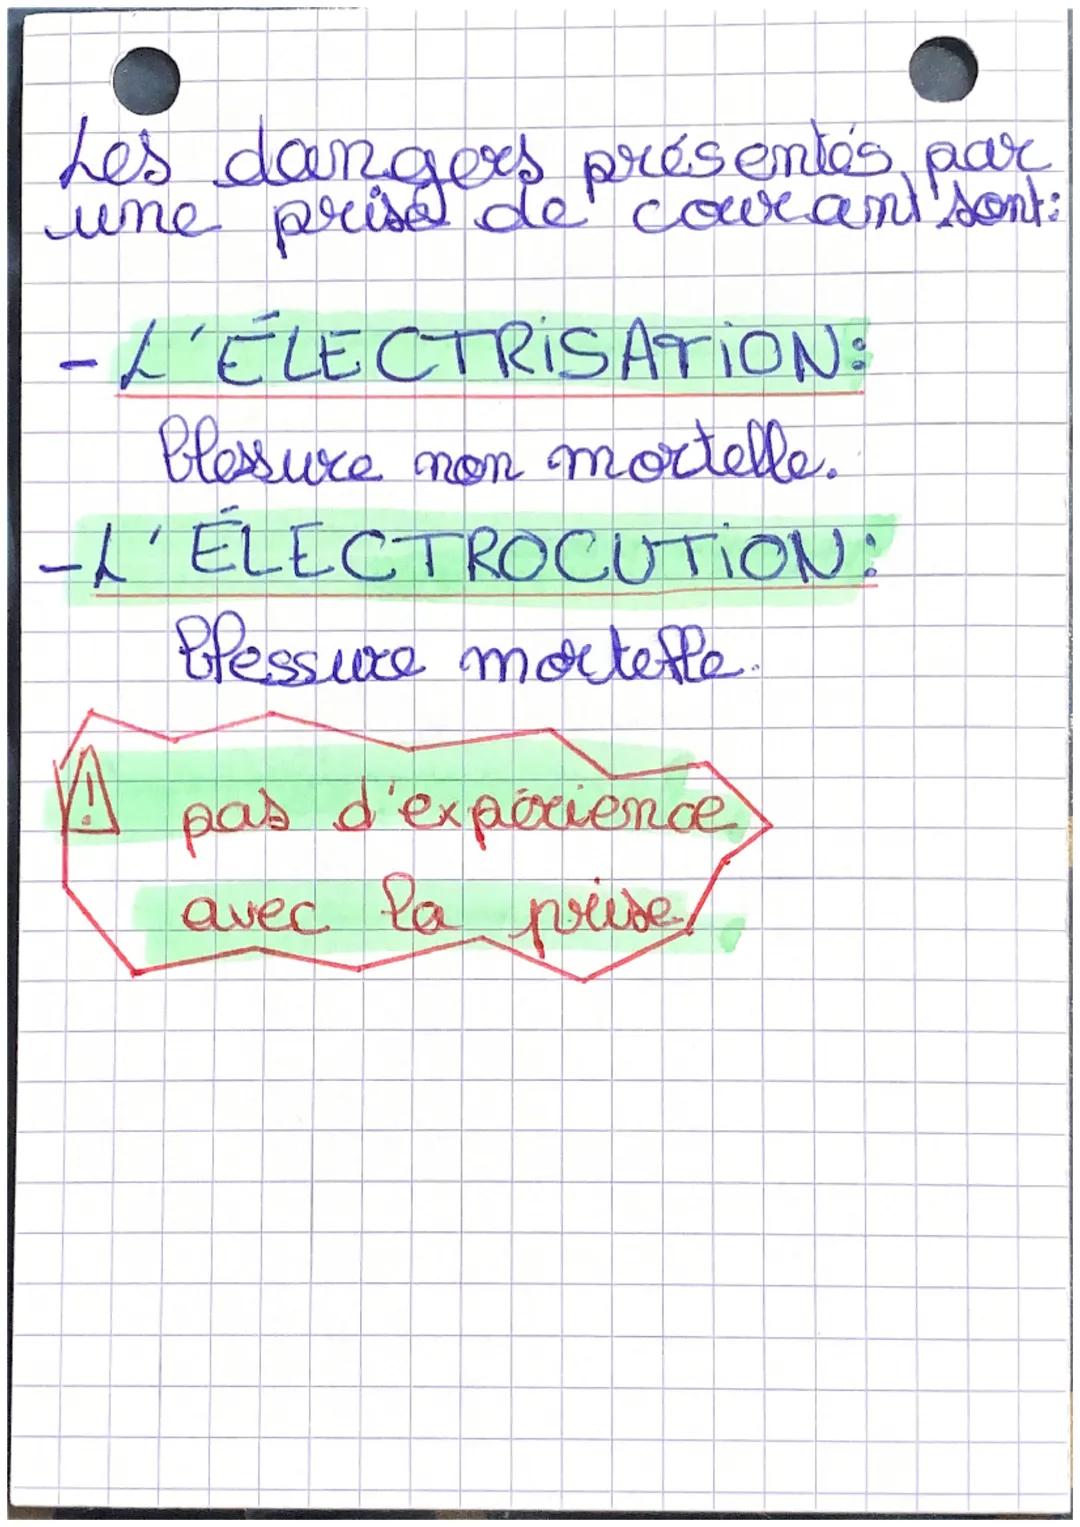 Les dangers présentés par
une prise de courant sont:
- L'ÉLECTRiSATiON:
blessure non mortelle.
- L'ÉLECTROCUTiON:
blessure mortelle.
! pas d'expérience
avec la prise